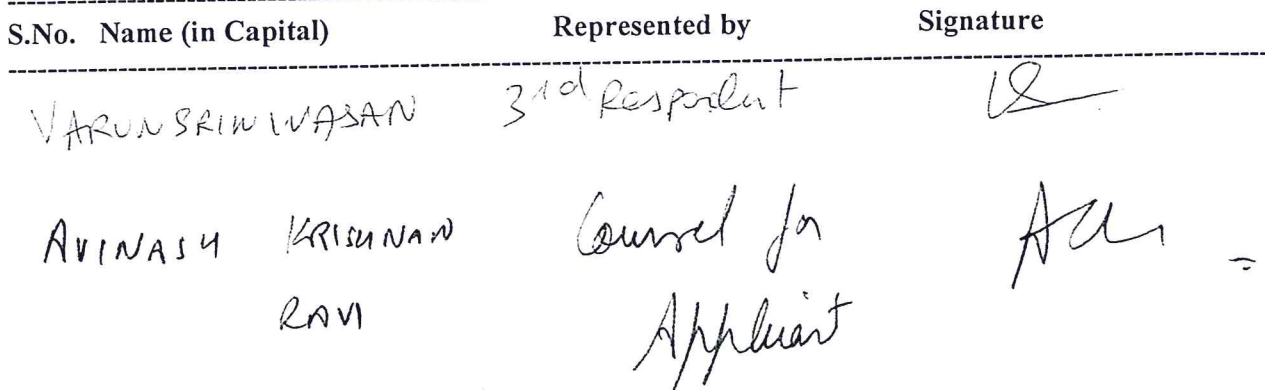 S.No. Name (in Capital) Represented by Signature
VARUN SRINIVASAN 3rd Respondent
AVINASH KRISHNAN Counsel for
RAVI Applicant